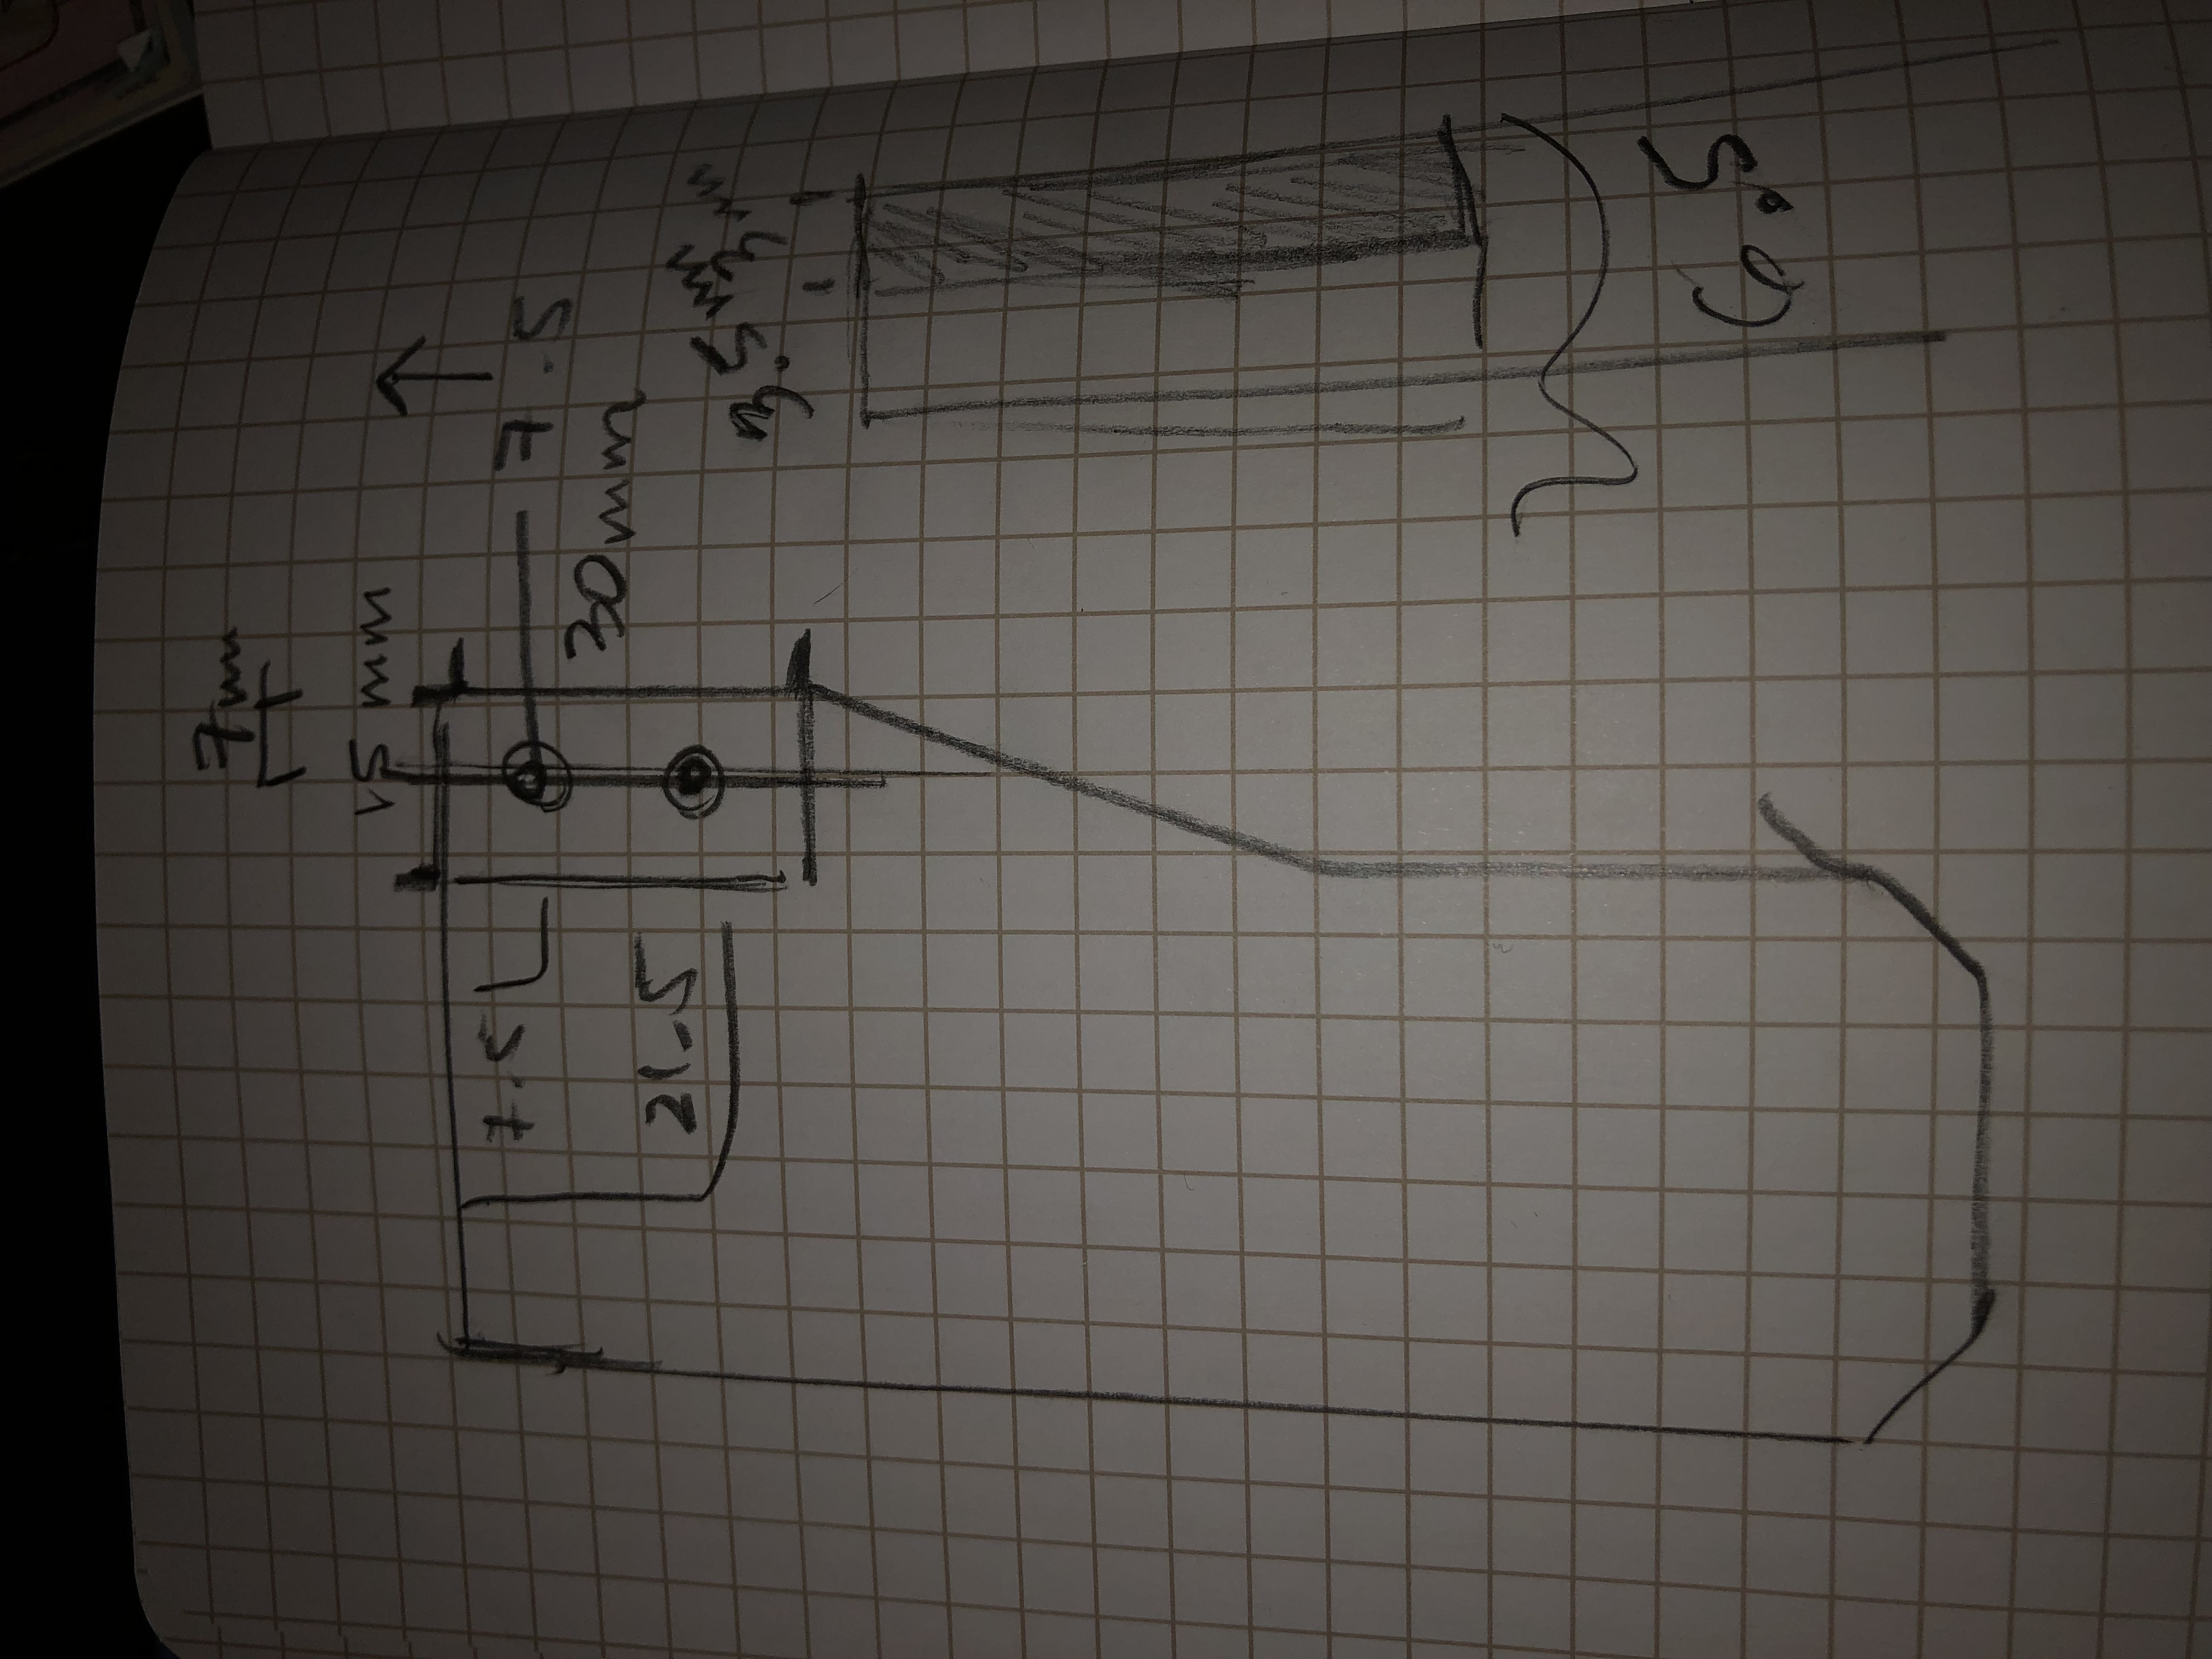 7mm
15 mm
7.5
7.5
30mm
21.5
3.5mm
3m
6.5